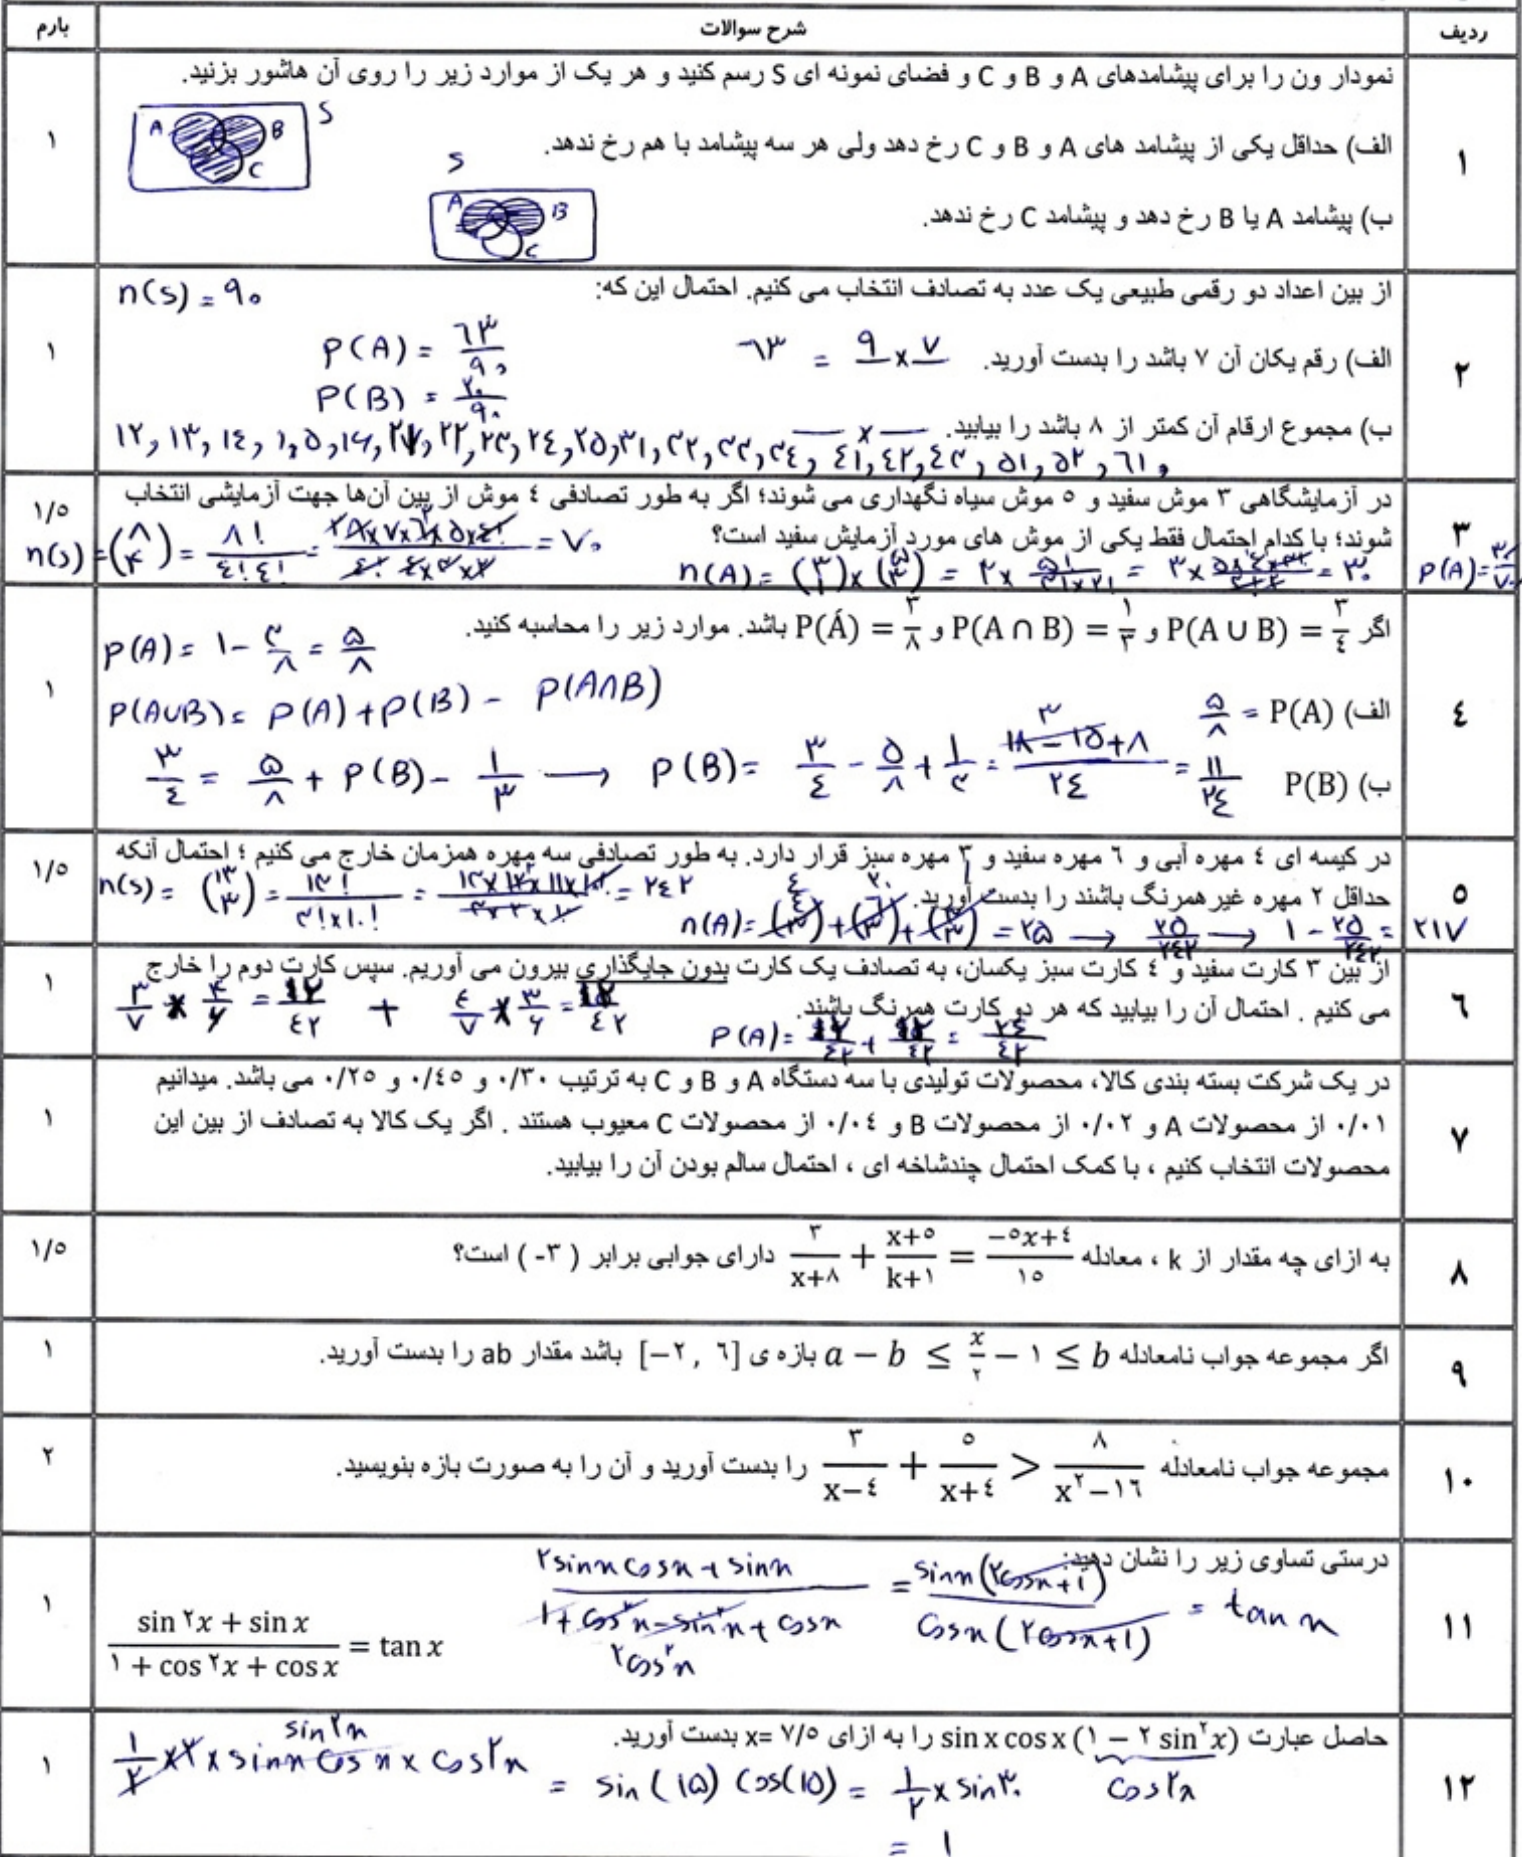 ردیف شرح سوالات بارم
۱ نمودار ون را برای پیشامدهای A و B و C و فضای نمونه ای S رسم کنید و هر یک از موارد زیر را روی آن هاشور بزنید. ۱
الف) حداقل یکی از پیشامد های A و B و C رخ دهد ولی هر سه پیشامد با هم رخ ندهد.
A B C S
ب) پیشامد A یا B رخ دهد و پیشامد C رخ ندهد.
S A B C
۲ از بین اعداد دو رقمی طبیعی یک عدد به تصادف انتخاب می کنیم. احتمال این که: ۱
n(S) = ۹۰
الف) رقم یکان آن ۷ باشد را بدست آورید.
۹ × ۷ = ۶۳
P(A) = ۶۳/۹۰
P(B) = ۲۰/۹۰
ب) مجموع ارقام آن کمتر از ۸ باشد را بیابید.
۳ در آزمایشگاهی ۳ موش سفید و ۵ موش سیاه نگهداری می شوند؛ اگر به طور تصادفی ٤ موش از بین آن‌ها جهت آزمایشی انتخاب ۱/۵
شوند؛ با کدام احتمال فقط یکی از موش های مورد آزمایش سفید است؟
٤ اگر P(A ∪ B) = ۳/٤ و P(A ∩ B) = ۱/۳ و P(Á) = ۳/۸ باشد. موارد زیر را محاسبه کنید. ۱
P(A) = ۱ - ۳/۸ = ۵/۸
P(A∪B) = P(A) + P(B) - P(A∩B)
الف) P(A) = ۵/۸
ب) P(B)
۳/٤ = ۵/۸ + P(B) - ۱/۳ → P(B) = ۳/٤ - ۵/۸ + ۱/۳ = ۱۸-۱۵+۸/۲٤ = ۱۱/۲٤
۵ در کیسه ای ٤ مهره آبی و ٦ مهره سفید و ۳ مهره سبز قرار دارد. به طور تصادفی سه مهره همزمان خارج می کنیم ؛ احتمال آنکه ۱/۵
حداقل ۲ مهره غیرهمرنگ باشند را بدست آورید.
٦ از بین ۳ کارت سفید و ٤ کارت سبز یکسان، به تصادف یک کارت بدون جایگذاری بیرون می آوریم. سپس کارت دوم را خارج ۱
می کنیم . احتمال آن را بیابید که هر دو کارت همرنگ باشند.
۷ در یک شرکت بسته بندی کالا، محصولات تولیدی با سه دستگاه A و B و C به ترتیب ۰/۳۰ و ۰/٤۵ و ۰/۲۵ می باشد. میدانیم ۱
۰/۰۱ از محصولات A و ۰/۰۲ از محصولات B و ۰/۰٤ از محصولات C معیوب هستند . اگر یک کالا به تصادف از بین این
محصولات انتخاب کنیم ، با کمک احتمال چندشاخه ای ، احتمال سالم بودن آن را بیابید.
۸ به ازای چه مقدار از k ، معادله ۳/x+۸ + x+۵/k+۱ = −۵x+٤/۱۵ دارای جوابی برابر ( ۳- ) است؟ ۱/۵
۹ اگر مجموعه جواب نامعادله a − b ≤ x/۲ − ۱ ≤ b بازه ی [−۲ , ٦] باشد مقدار ab را بدست آورید. ۱
۱۰ مجموعه جواب نامعادله ۳/x−٤ + ۵/x+٤ > ۸/x۲−۱٦ را بدست آورید و آن را به صورت بازه بنویسید. ۲
۱۱ درستی تساوی زیر را نشان دهید: ۱
sin ۲x + sin x/۱ + cos ۲x + cos x = tan x
۲sinx cosx + sinx/۱ + cos²x - sin²x + cosx = sinx(۲cosx+۱)/cosx(۲cosx+۱) = tan x
۲cos²x
۱۲ حاصل عبارت sin x cos x (۱ − ۲ sin²x) را به ازای x= ۷/۵ بدست آورید. ۱
cos۲x
= sin(۱۵) cos(۱۵) = ۱/۲ × sin۳۰
= ۱